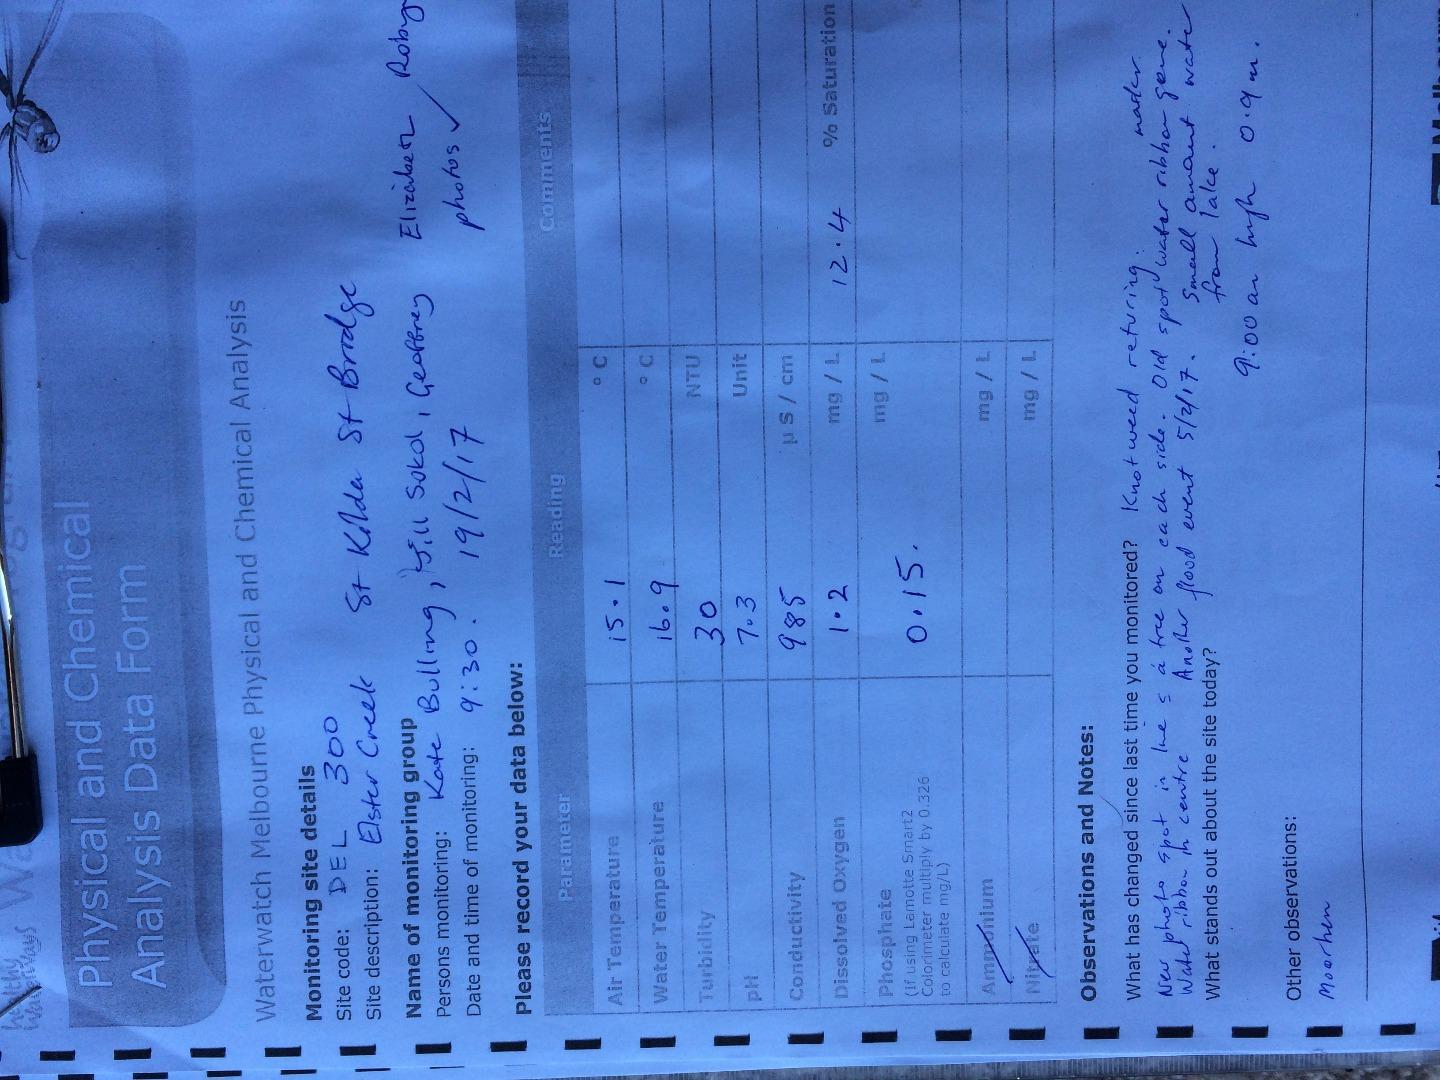 Physical and Chemical
Analysis Data Form
Waterwatch Melbourne Physical and Chemical Analysis
Monitoring site details
Site code: DEL 300
Site description: Elster Creek St Kilda St Bridge
Name of monitoring group
Persons monitoring: Kate Bulling, Jill Sokol, Geoffrey Elizabeth Robyn
Date and time of monitoring: 9:30. 19/2/17 photos ✓
Please record your data below:
Parameter Reading Comments
Air Temperature 15.1 °C
Water Temperature 16.9 °C
Turbidity 30 NTU
pH 7.3 Unit
Conductivity 985 µS / cm
Dissolved Oxygen 1.2 mg / L 12.4 % Saturation
Phosphate 0.15. mg / L
(If using Lamotte Smart2
Colorimeter multiply by 0.326
to calculate mg/L)
Ammonium mg / L
Nitrate mg / L
Observations and Notes:
What has changed since last time you monitored? Knotweed returning.
New photo spot in line a tree on each side. Old spot water ribbon gone.
Water ribbon in centre Another flood event 5/2/17. Small amount water
from lake.
What stands out about the site today?
9:00 am high 0.9 m.
Other observations:
Moorhen